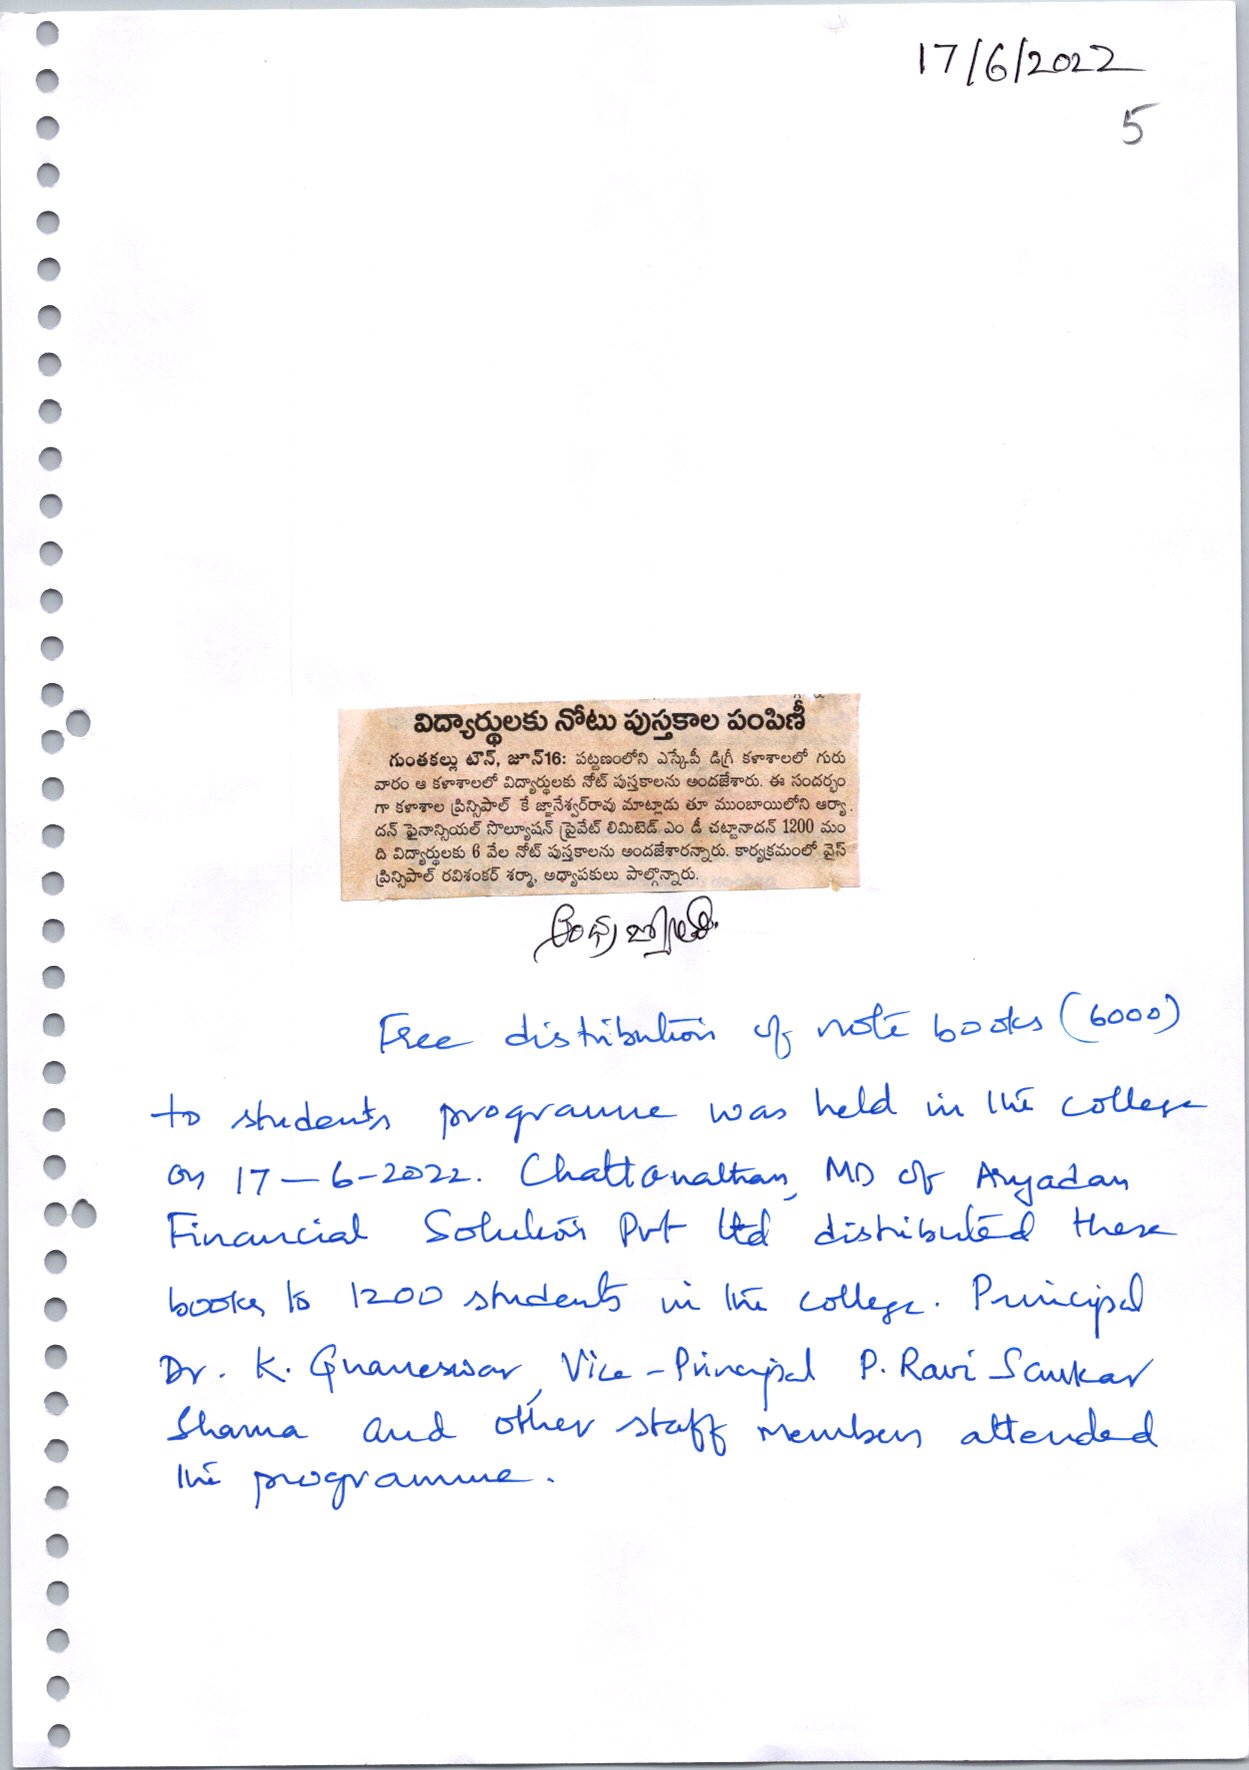 17/6/2022
5
విద్యార్థులకు నోటు పుస్తకాల పంపిణీ
గుంతకల్లు టౌన్, జూన్16: పట్టణంలోని ఎస్కేపీ డిగ్రీ కళాశాలలో గురు
వారం ఆ కళాశాలలో విద్యార్థులకు నోట్ పుస్తకాలను అందజేశారు. ఈ సందర్భం
గా కళాశాల ప్రిన్సిపాల్ కే జ్ఞానేశ్వర్‌రావు మాట్లాడు తూ ముంబాయిలోని ఆర్యా
దన్ ఫైనాన్సియల్ సొల్యూషన్ ప్రైవేట్ లిమిటెడ్ ఎం డీ చట్టానాదన్ 1200 మం
ది విద్యార్థులకు 6 వేల నోట్ పుస్తకాలను అందజేశారన్నారు. కార్యక్రమంలో వైస్
ప్రిన్సిపాల్ రవిశంకర్ శర్మా, అధ్యాపకులు పాల్గొన్నారు.
ఆంధ్ర జ్యోతి.
Free distribution of note books (6000)
to students programme was held in the college
on 17-6-2022. Chattanathan, MD of Aryadan
Financial Solutions Pvt Ltd distributed these
books to 1200 students in the college. Principal
Dr. K. Gnaneswar, Vice-Principal P. Ravi Sankar
Sharma and other staff members attended
the programme.